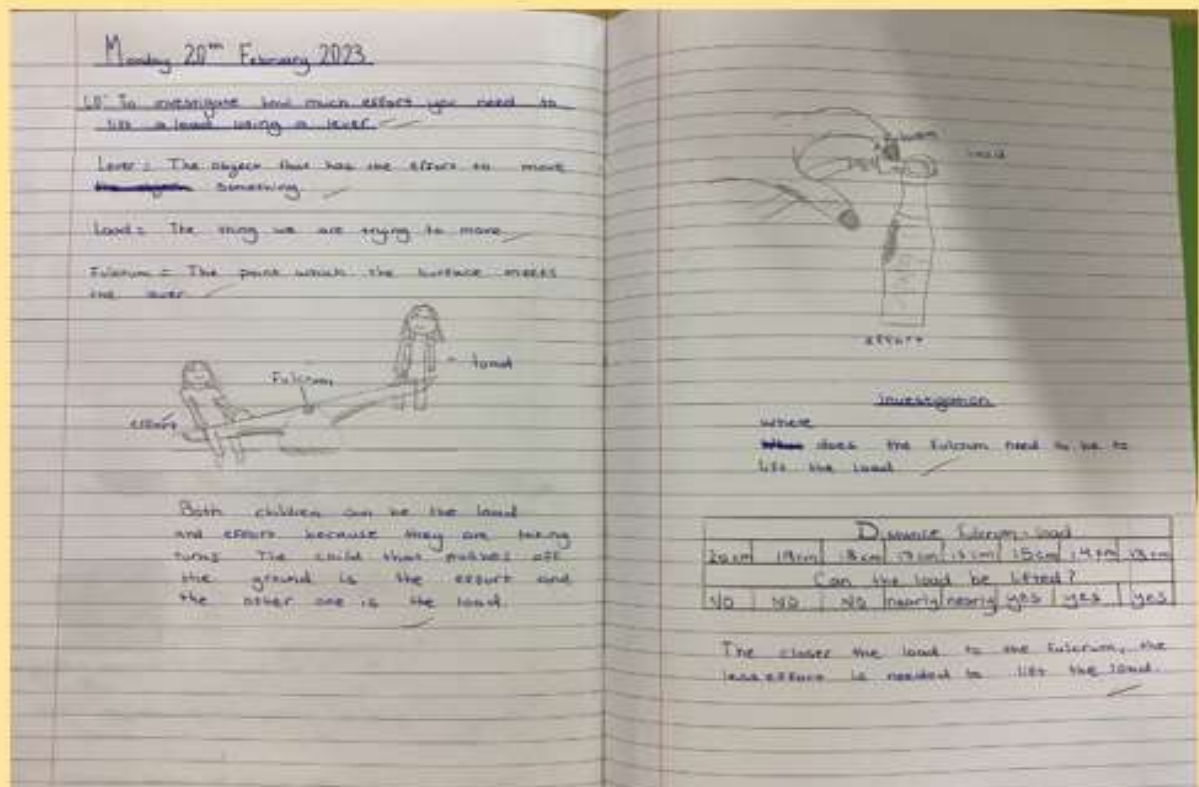 Monday 20th February 2023
LO: To investigate how much effort you need to
lift a load using a lever.
Lever = The object that has the effort to move
something
Load = The thing we are trying to move
Fulcrum = The point which the surface meets
the lever
load
Fulcrum
effort
Both children can be the load
and effort because they are taking
turns The child that pushes off
the ground is the effort and
the other one is the load.
Fulcrum
load
effort
investigation
where
does the fulcrum need to be to
lift the load
Distance fulcrum - load
20cm 19cm 18cm 17cm 16cm 15cm 14cm 13cm
Can the load be lifted?
NO NO NO nearly nearly yes yes yes
The closer the load to the fulcrum, the
less effort is needed to lift the load.